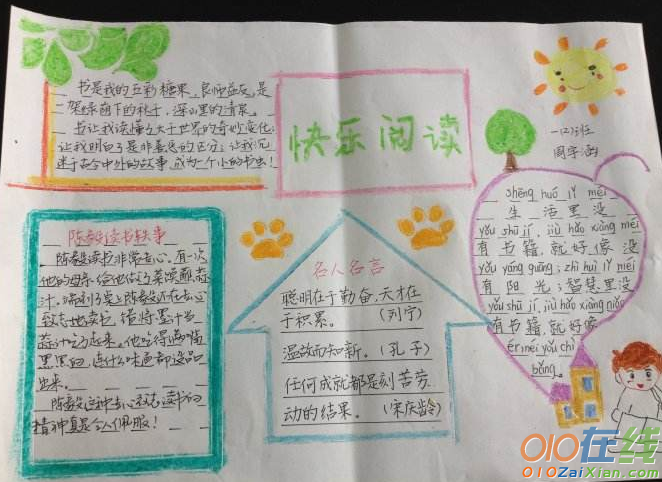 书是我的五彩糖果、良师益友、是
一架绿荫下的秋千,深山里的清泉。
书让我读懂了大千世界的奇妙变化;
让我明白了是非善恶的区分;让我沉
迷于古今中外的故事,成为一个小的书虫!
快乐阅读
一(2)班
周宇涵
陈毅读书轶事
陈毅读书非常专心,有一次
他的母亲给他做了菜馍蘸蒜
汁,端到桌上陈毅还在专心
致志地读书,错将墨汁当
蒜汁吃了起来。他吃得满嘴
黑黑的,连什么味道都没品
出来。
陈毅这种专心致志读书的
精神真是令人佩服!
名人名言
聪明在于勤奋,天才在
于积累。(列宁)
温故而知新。(孔子)
任何成就都是刻苦劳
动的结果。(宋庆龄)
shēng huó lǐ méi
生活里没
yǒu shū jí, jiù hǎo xiàng méi
有书籍,就好像没
yǒu yáng guāng; zhì huì lǐ méi
有阳光;智慧里没
yǒu shū jí, jiù hǎo xiàng niǎo
有书籍,就好像
ér méi yǒu chì
bǎng。
010在线
010ZaiXian.com